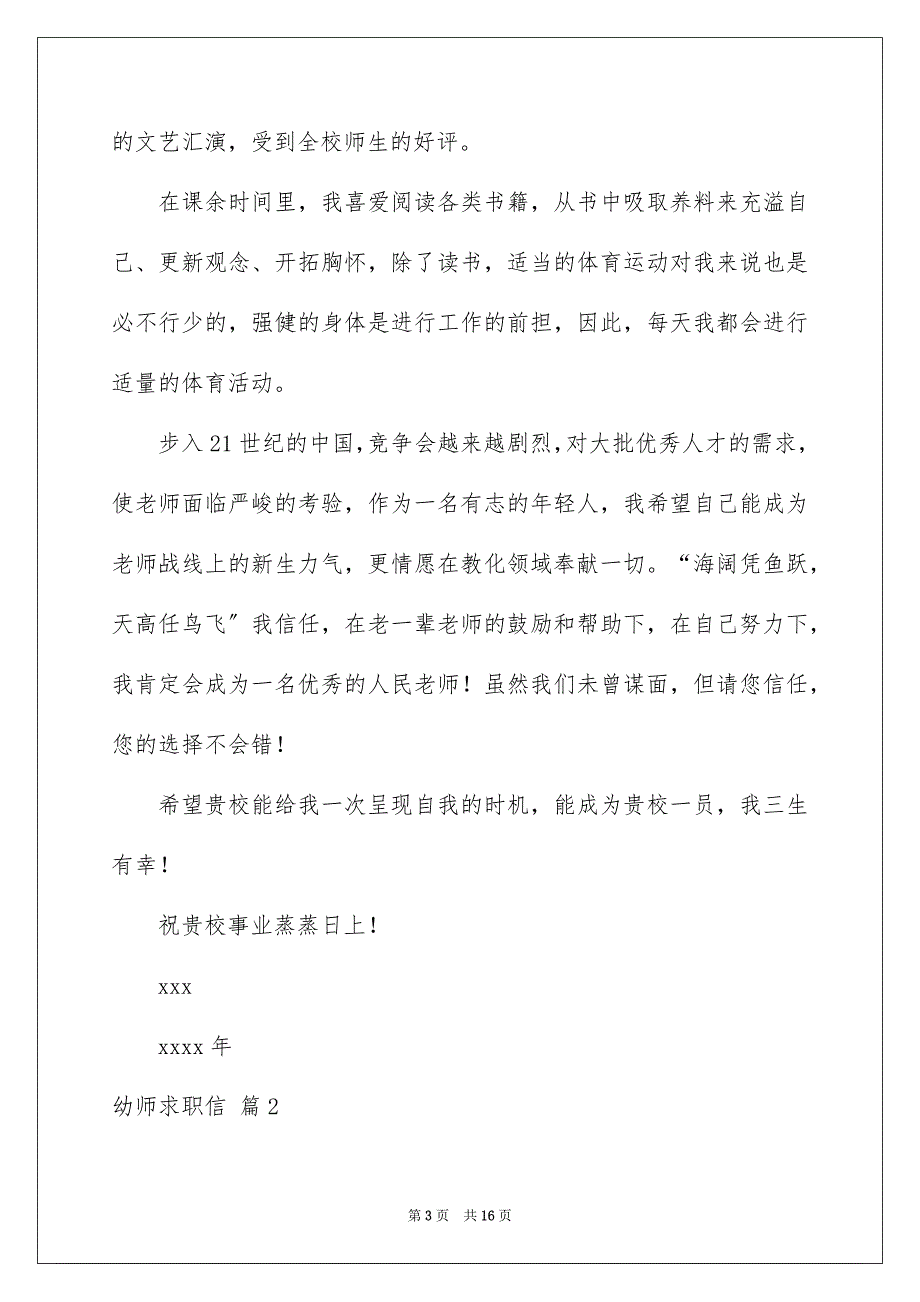 的文艺汇演，受到全校师生的好评。
在课余时间里，我喜爱阅读各类书籍，从书中吸取养料来充溢自
己、更新观念、开拓胸怀，除了读书，适当的体育运动对我来说也是
必不行少的，强健的身体是进行工作的前担，因此，每天我都会进行
适量的体育活动。
步入21世纪的中国，竞争会越来越剧烈，对大批优秀人才的需求，
使老师面临严峻的考验，作为一名有志的年轻人，我希望自己能成为
老师战线上的新生力气，更情愿在教化领域奉献一切。“海阔凭鱼跃，
天高任鸟飞〞我信任，在老一辈老师的鼓励和帮助下，在自己努力下，
我肯定会成为一名优秀的人民老师！虽然我们未曾谋面，但请您信任，
您的选择不会错！
希望贵校能给我一次呈现自我的时机，能成为贵校一员，我三生
有幸！
祝贵校事业蒸蒸日上！
xxx
xxxx年
幼师求职信 篇2
第 3 页 共 16 页